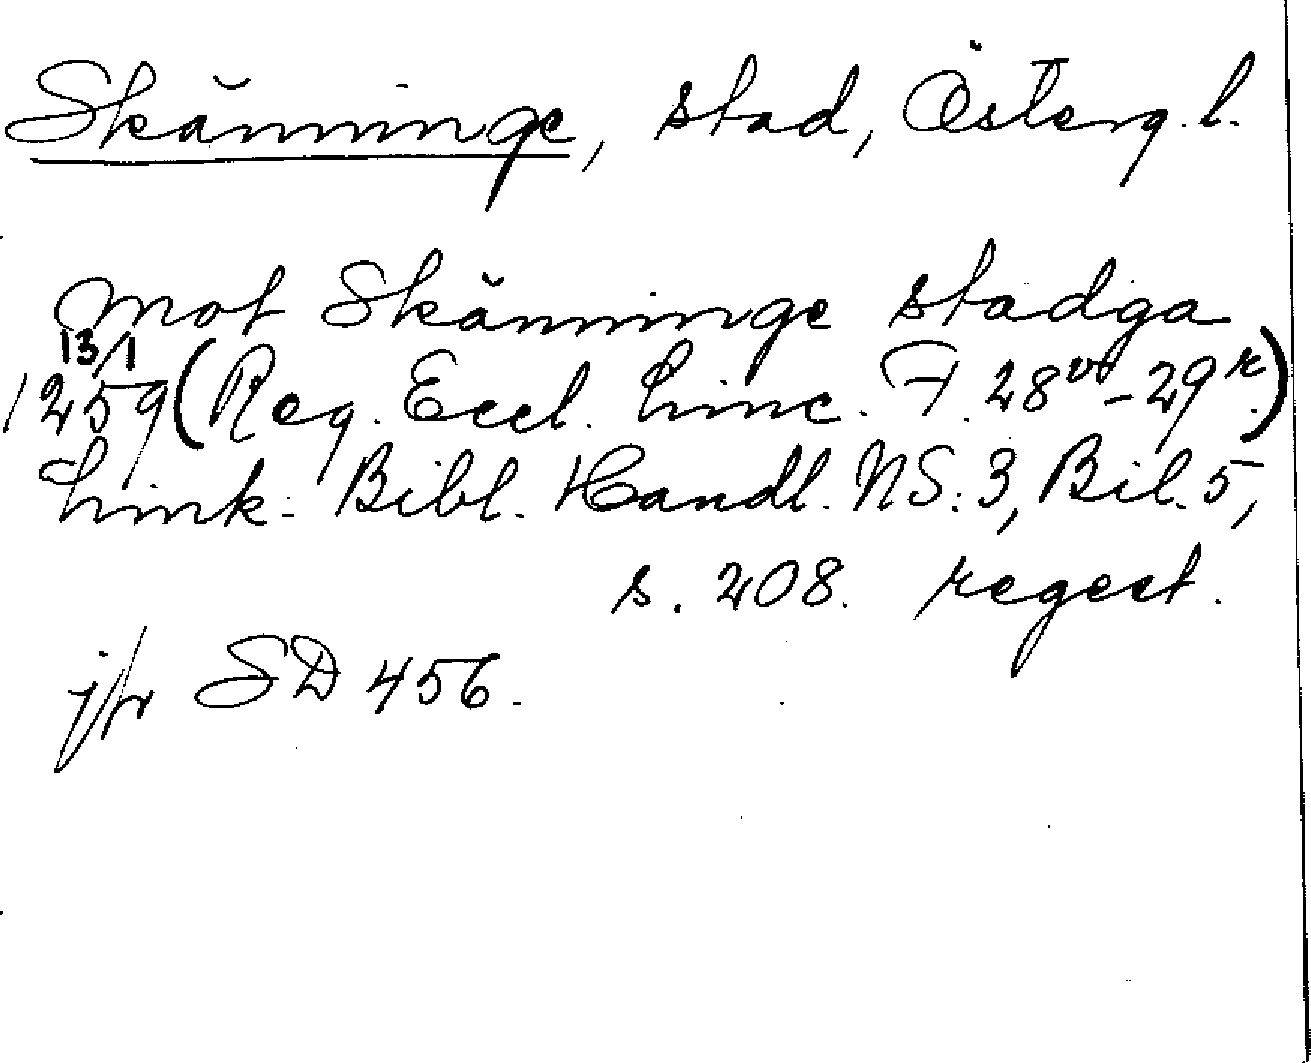 Skänninge, stad, Österg. l.
mot Skänninge stadga
13/1
1259 (Reg. Eccl. Linc. F. 28v-29r.)
Link. Bibl. Handl. NS. 3, Bil. 5,
s. 208. regest.
jfr SD 456.